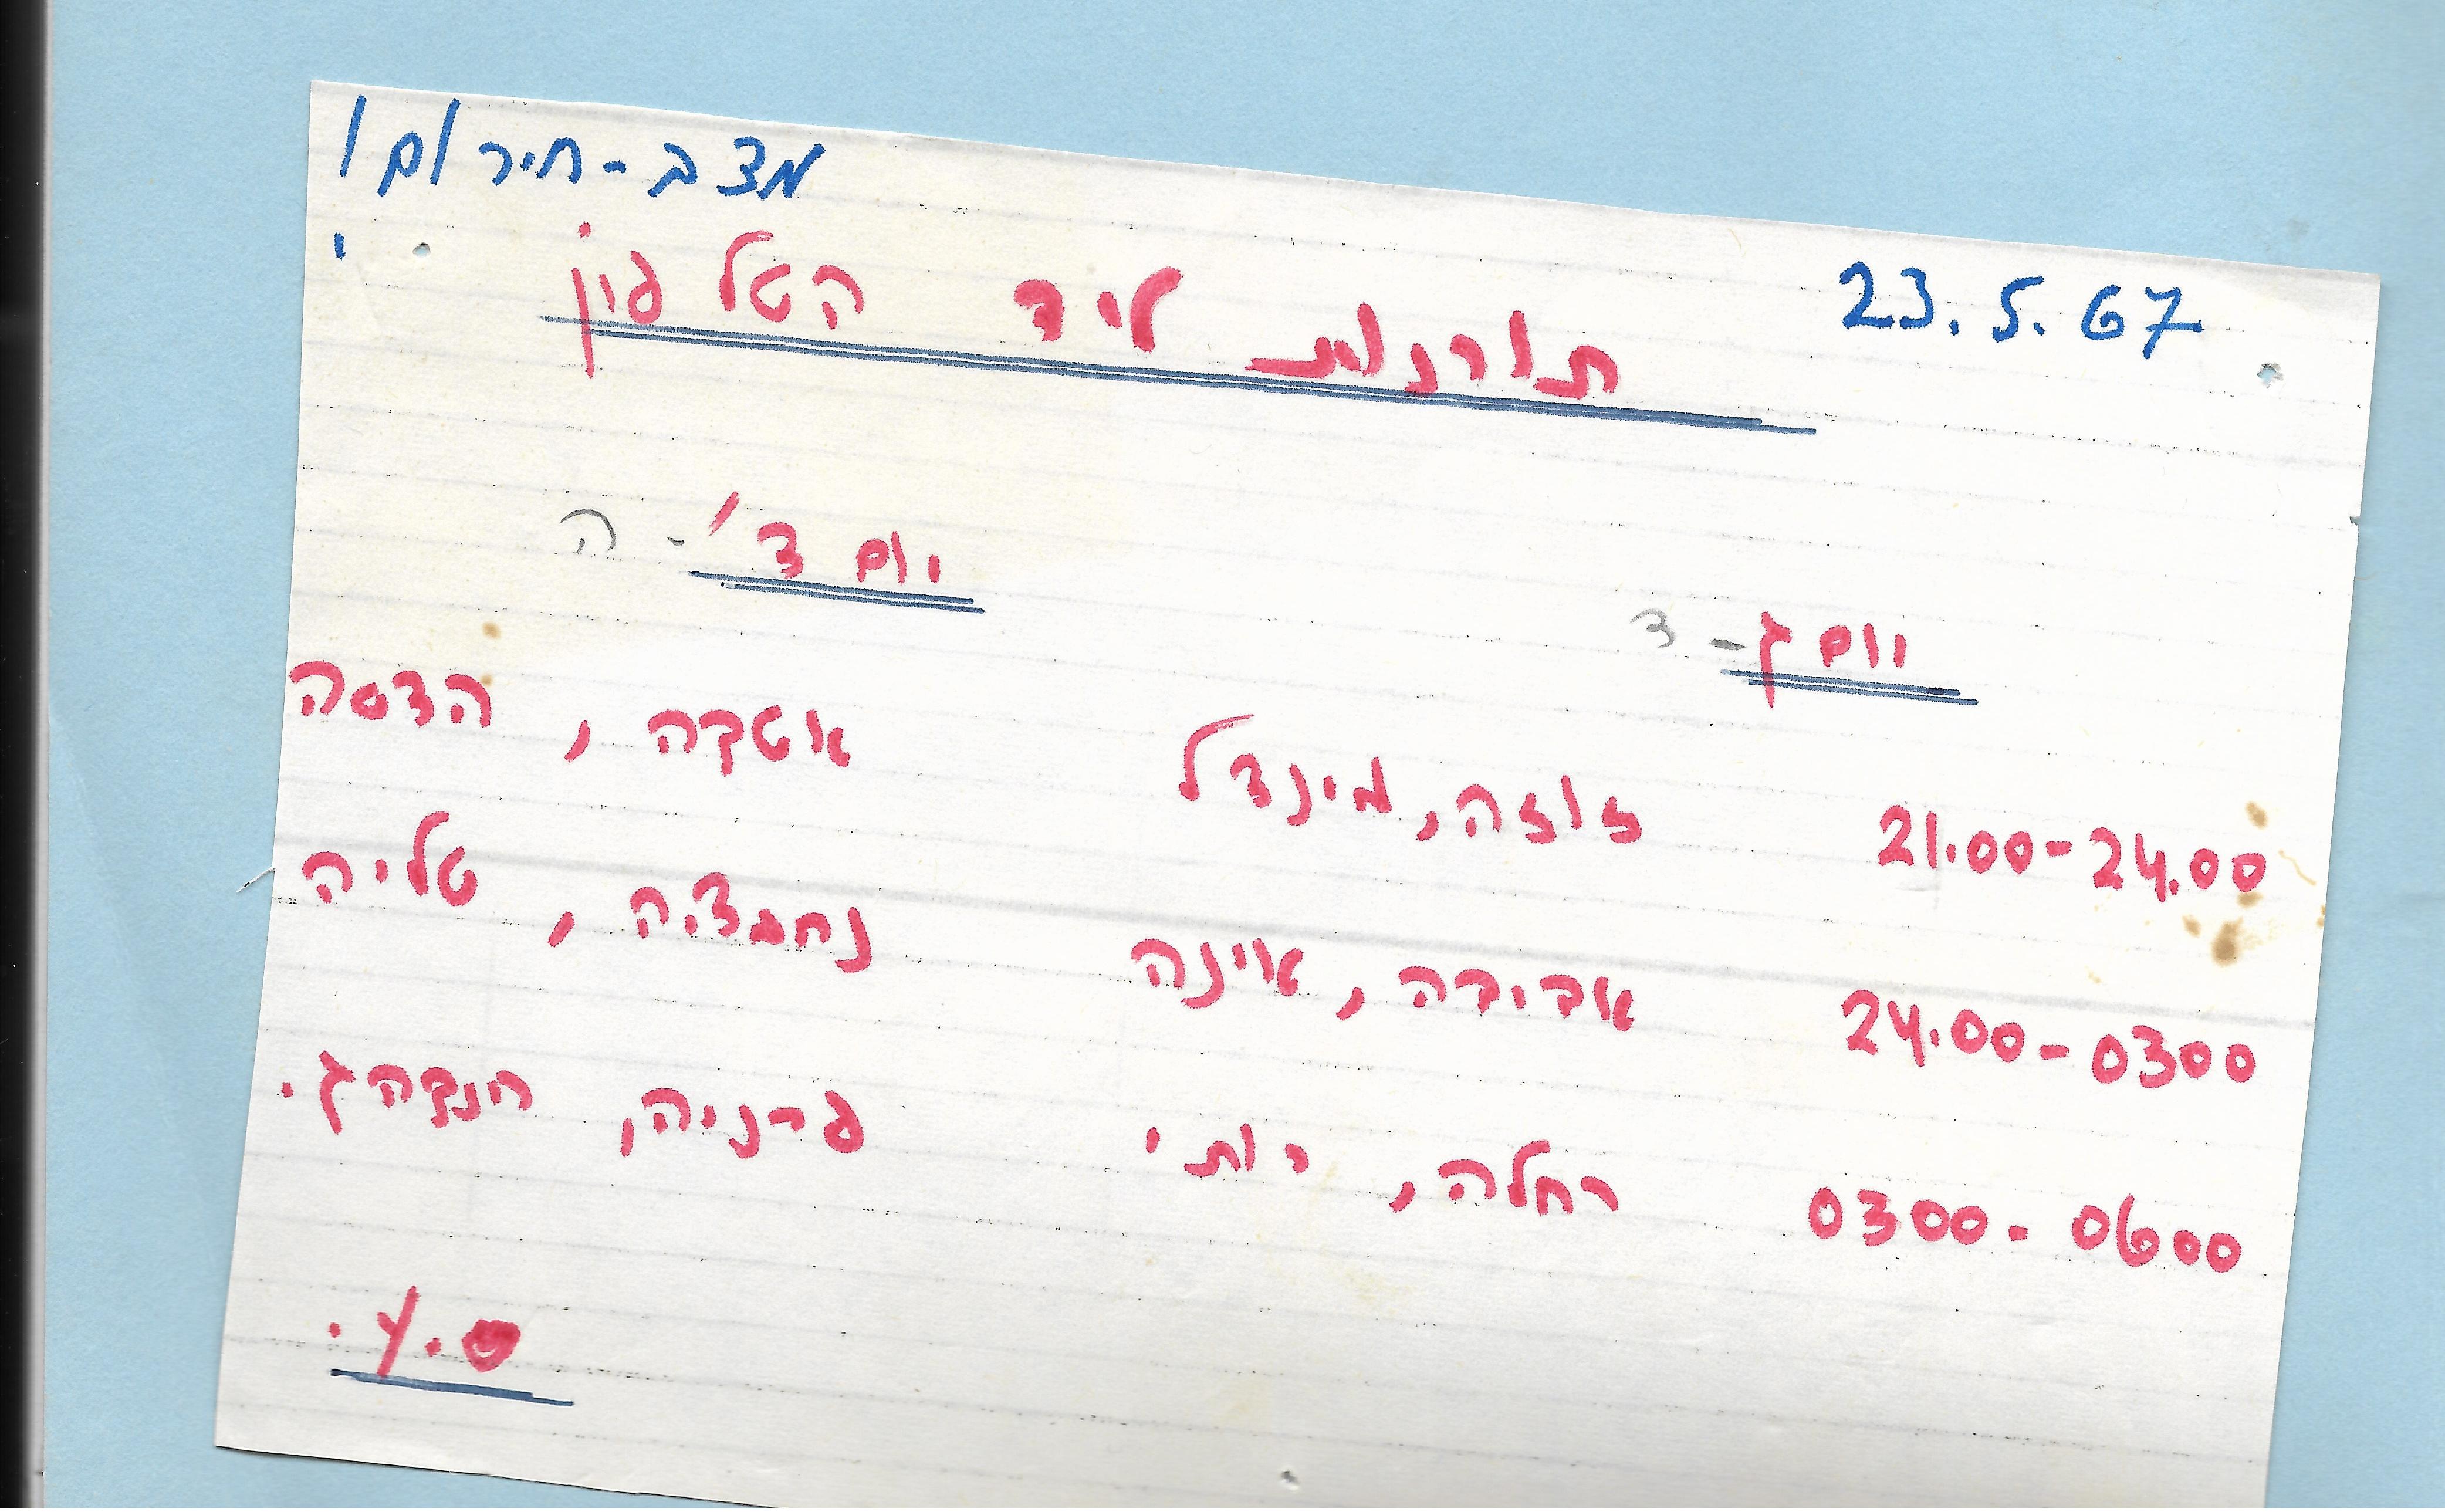 מצב-חירום!
23.5.67
תורנות ליד הטלפון
יום ג-ד
יום ד'-ה
21.00-24.00 זוזה, מינדל אסקה, הדסה
24.00-0300 אביבה, אינה נחמצ'ה, טליה
0300-0600 רחלה, רותי פרניה, חנקה ג.
ס.ע.